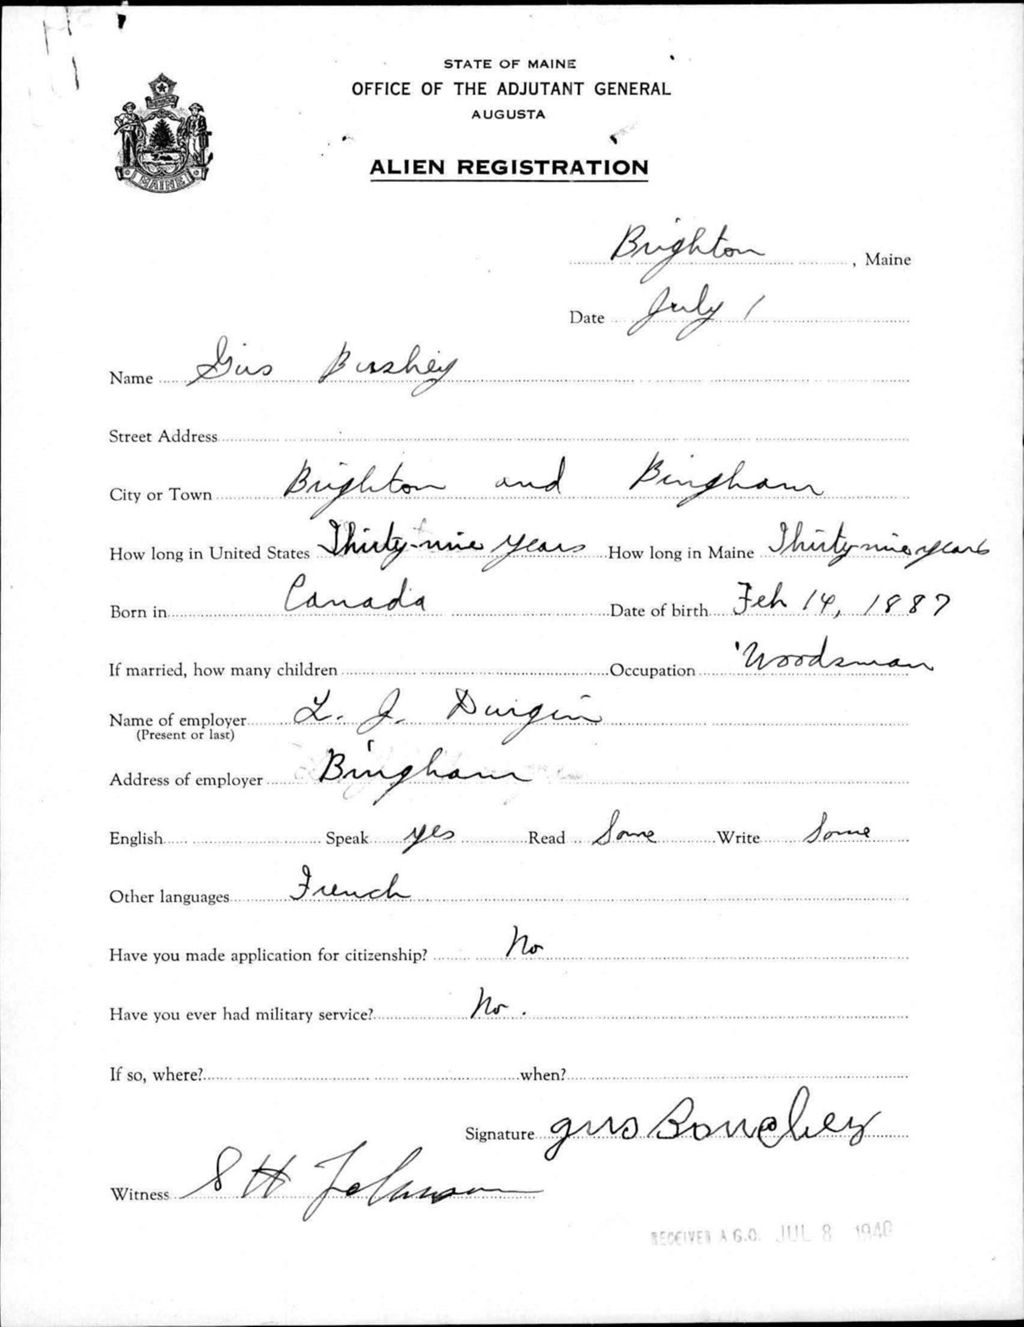 STATE OF MAINE
OFFICE OF THE ADJUTANT GENERAL
AUGUSTA
ALIEN REGISTRATION
MAINE
Brighton, Maine
Date July 1
Name Gus Bushey
Street Address
City or Town Brighton and Bingham
How long in United States Thirty-nine years How long in Maine Thirty-nine years
Born in Canada Date of birth Feb 14, 1887
If married, how many children Occupation Woodsman
Name of employer L. J. Durgin
(Present or last)
Address of employer Bingham
English Speak yes Read Some Write Some
Other languages French
Have you made application for citizenship? No
Have you ever had military service? No.
If so, where? when?
Signature gus Bouchey
Witness S H Johnson
RECEIVED A.G.O. JUL 8 1940